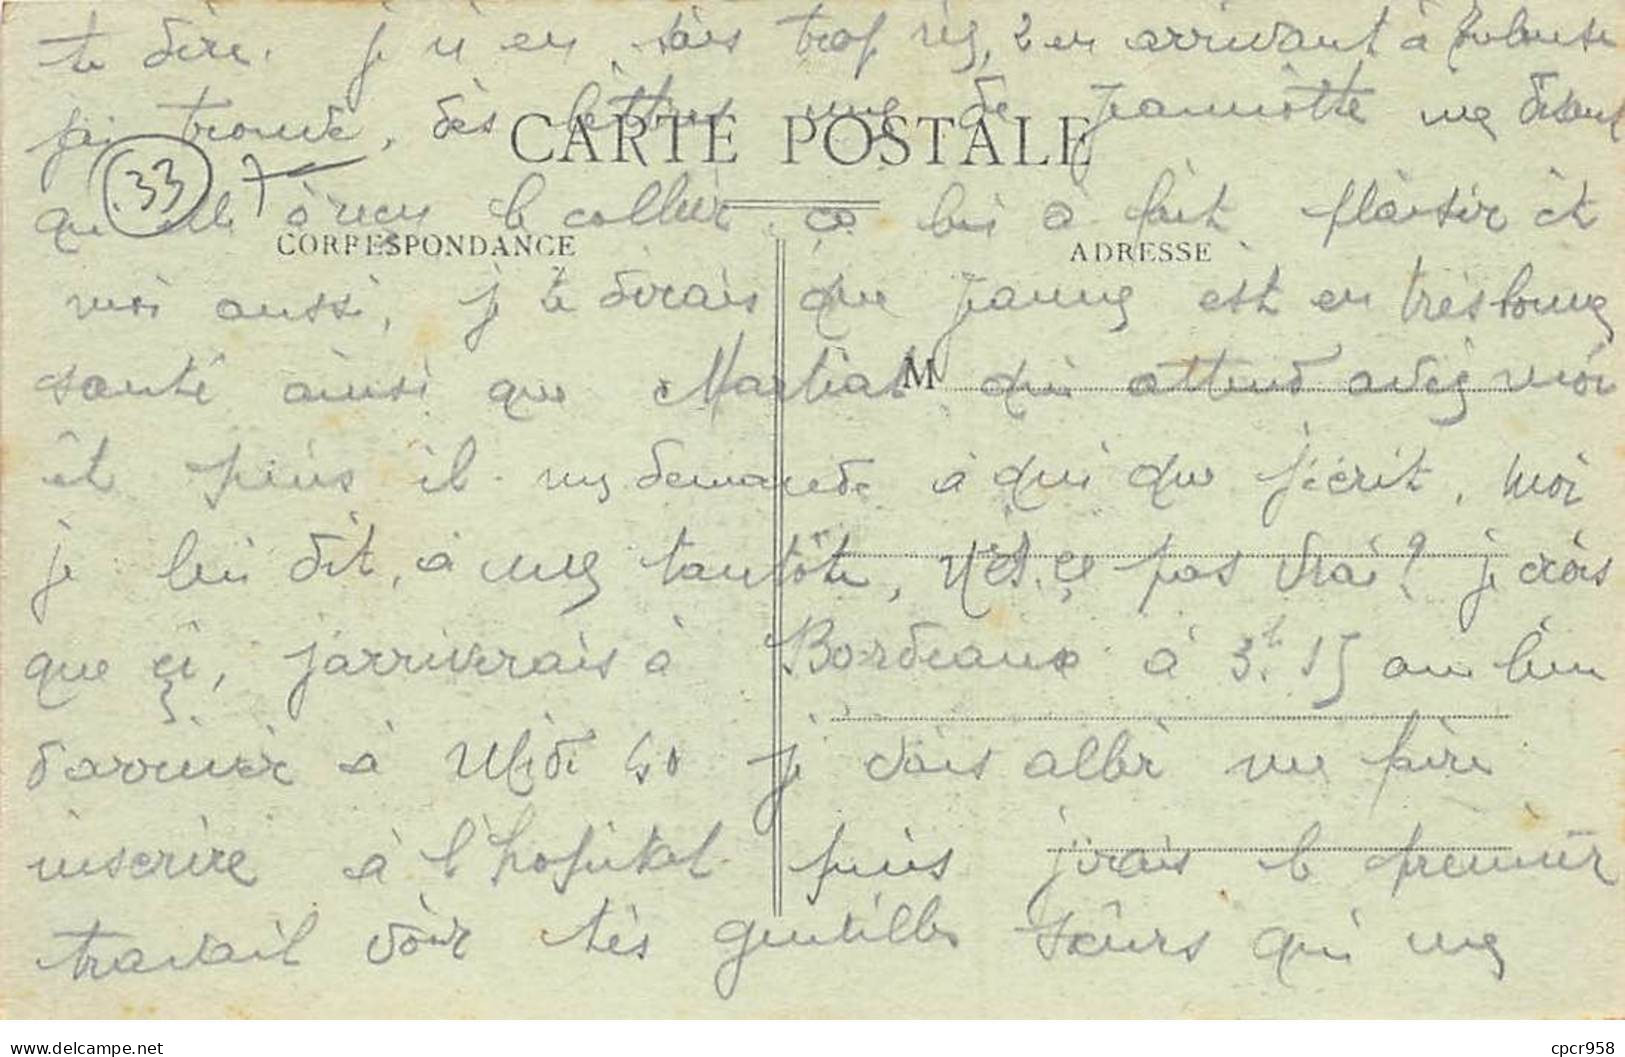 te dire. je n'en sais trop rien, 2 en arrivant à Toulouse
j'ai trouvé, dès lettres une de Jeannette me disant
CARTE POSTALE
33
qu'elle à reçu le collier ça lui a fait plaisir et
CORRESPONDANCE
ADRESSE
moi aussi, je te dirais que Jeanne est en très bonne
M
santé ainsi que Martial qui attend avec moi
et puis il me demande à qui que j'écrit, moi
je lui dit, à une tantôte, n'est ce pas vrai? je crois
que çi, j'arriverais à Bordeaux à 3h.15 au lieu
d'arriver à Midi 40 je dois aller me faire
inscrire à l'hopital puis j'irais le premier
travail voir tes gentilles sœurs qui me
https://www.delcampe.net
cpcr958